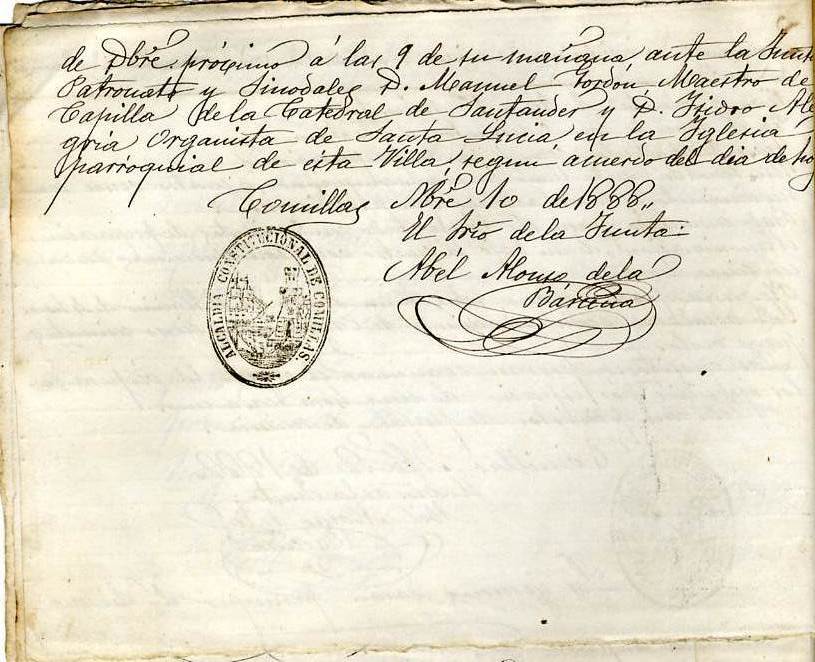 de Dbre. próximo á las 9 de su mañana, ante la Junta
Patronato y Sinodales D. Manuel Yordon, Maestro de
Capilla de la Catedral de Santander y D. Isidro Ale
gria Organista de Santa Lucia, en la Iglesia
parroquial de esta Villa, segun acuerdo del dia de hoy
Comillas Nbre 10 de 1888,,
El Srio de la Junta:
Abél Alonso de la
Bárcena
ALCALDIA CONSTITUCIONAL DE COMILLAS.